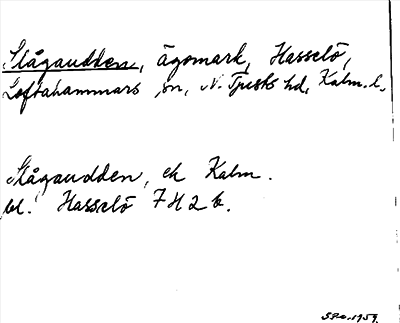 Slågaudden, ägomark, Hasselö,
Loftahammars sn, N. Tjusts hd, Kalm. l.
Slågaudden, ek Kalm.
bl. Hasselö 7H2b.
SPO. 1959.